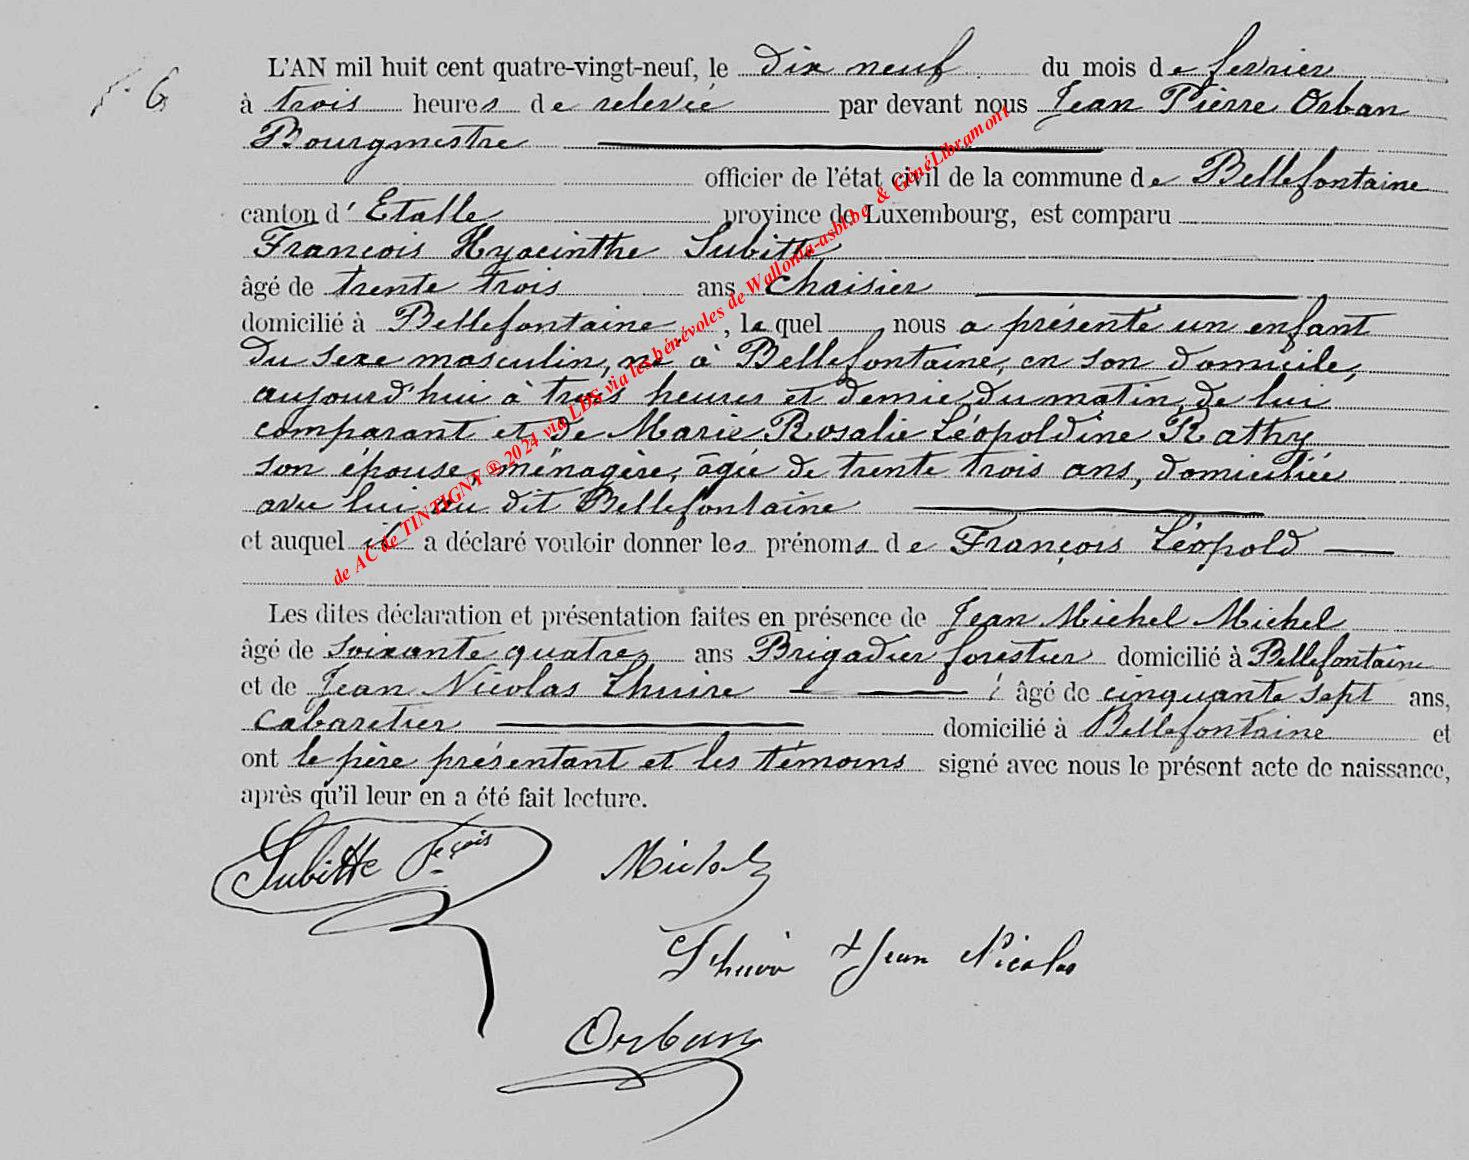 6
L'AN mil huit cent quatre-vingt-neuf, le dix neuf du mois de fevrier
à trois heures de relevée par devant nous Jean Pierre Orban
Bourgmestre
officier de l'état civil de la commune de Bellefontaine
canton d'Etalle province de Luxembourg, est comparu
François Hyacinthe Lubitte
âgé de trente trois ans chaisier
domicilié à Bellefontaine, le quel nous a présenté un enfant
du sexe masculin, né à Bellefontaine, en son domicile,
aujourd'hui à trois heures et demie du matin, de lui
comparant et de Marie Rosalie Léopoldine Rathy
son épouse, ménagère, âgée de trente trois ans, domiciliée
avec lui au dit Bellefontaine
et auquel il a déclaré vouloir donner les prénoms de François Léopold
Les dites déclaration et présentation faites en présence de Jean Michel Michel
âgé de soixante quatre ans Brigadier forestier domicilié à Bellefontaine
et de Jean Nicolas Thuire âgé de cinquante sept ans,
cabaretier domicilié à Bellefontaine et
ont le père présentant et les témoins signé avec nous le présent acte de naissance,
après qu'il leur en a été fait lecture.
Lubitte Fçois Michel
Jean Nicolas
Orban
de AC de TINTIGNY ® 2024 via LDS via les bénévoles de Wallonia-asbl.be & GénéLibramont